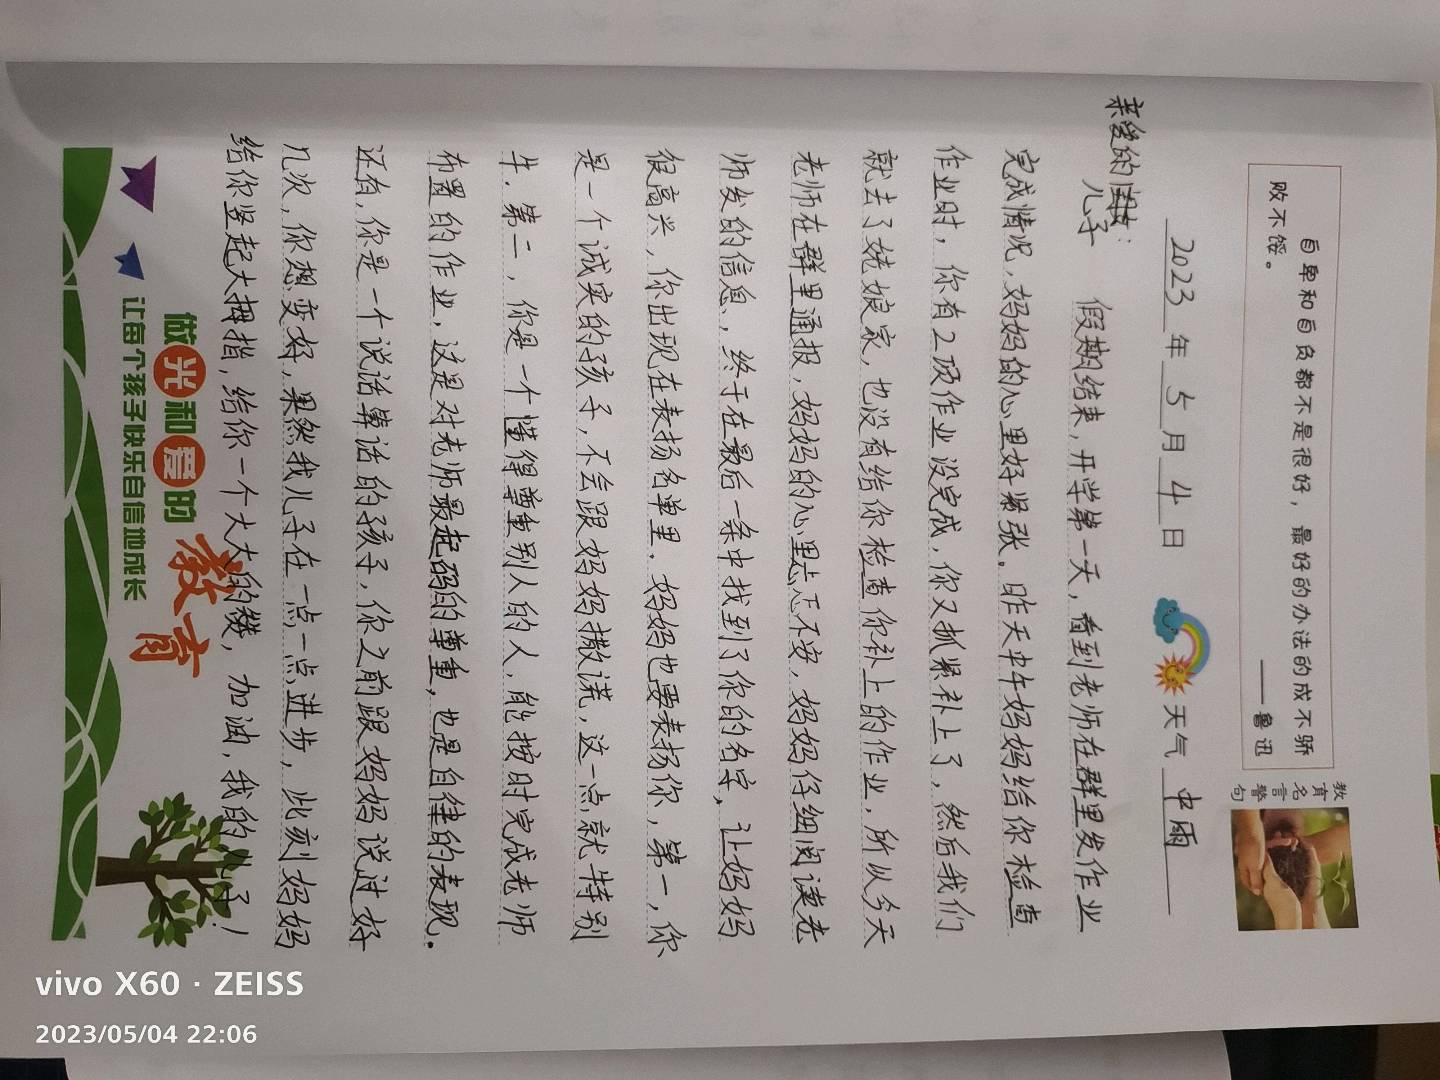 自卑和自负都不是很好，最好的办法的成不骄
败不馁。
——鲁迅
教育名言警句
2023年5月4日 天气 中雨
亲爱的儿子：
假期结束，开学第一天，看到老师在群里发作业
完成情况，妈妈的心里好紧张。昨天中午妈妈给你检查
作业时，你有2项作业没完成，你又抓紧补上了，然后我们
就去了姥娘家，也没有给你检查你补上的作业，所以今天
老师在群里通报，妈妈的心里忐忑不安，妈妈仔细阅读老
师发的信息，终于在最后一条中找到了你的名字，让妈妈
很高兴，你出现在表扬名单里，妈妈也要表扬你，第一，你
是一个诚实的孩子，不会跟妈妈撒谎，这一点就特别
牛．第二，你是一个懂得尊重别人的人，能按时完成老师
布置的作业，这是对老师最起码的尊重，也是自律的表现．
还有，你是一个说话算话的孩子，你之前跟妈妈说过好
几次，你想变好，果然我儿子在一点一点进步，此刻妈妈
给你竖起大拇指，给你一个大大的赞，加油，我的儿子！
做光和爱的教育
让每个孩子快乐自信地成长
vivo X60 · ZEISS
2023/05/04 22:06